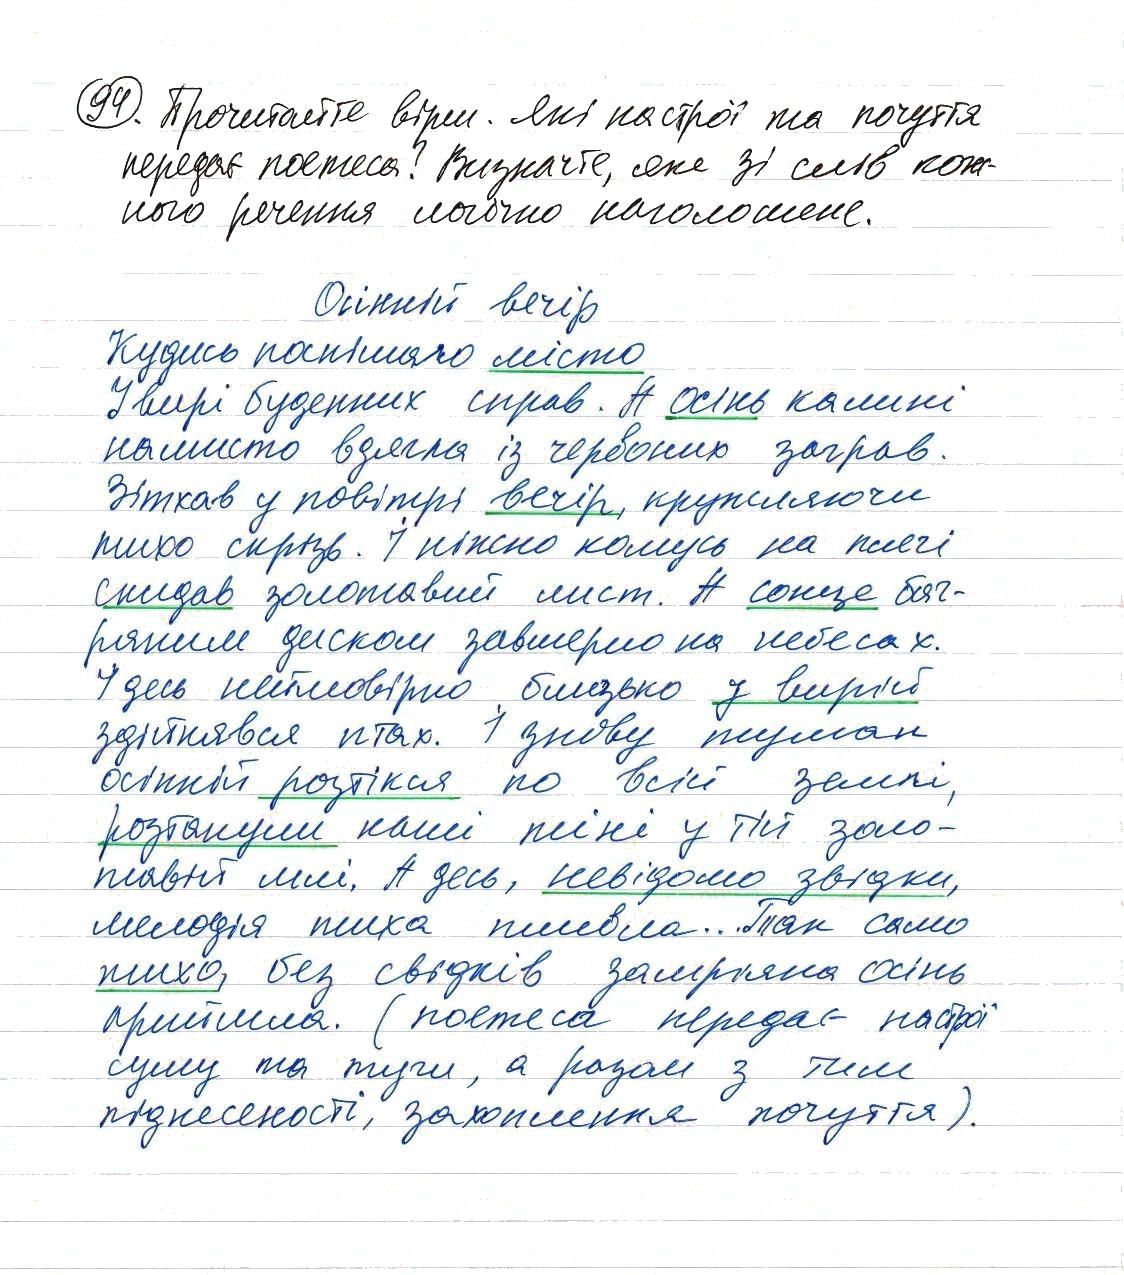 94. Прочитайте вірш. Які настрої та почуття
передає поетеса? Визначте, яке зі слів кож-
ного речення логічно наголошене.
Осінній вечір
Кудись поспішало місто
І вирі буденних справ. А осінь калині
намисто вдягла із червоних заграв.
Зіткав у повітрі вечір, кружляючи
тихо скрізь. І ніжно комусь на плечі
скидав золотавий лист. А сонце баг-
ряним диском завмерло на небесах.
І десь неймовірно близько у вирій
здійнявся птах. І знову туман
осінній розтікся по всій землі,
розтанули наші тіні у тій золо-
тавій млі. А десь, невідомо звідки,
мелодія тиха пливла... Так само
тихо, без свідків замріяна осінь
прийшла. (поетеса передає настрої
суму та туги, а разом з тим
піднесеності, захоплення почуття).